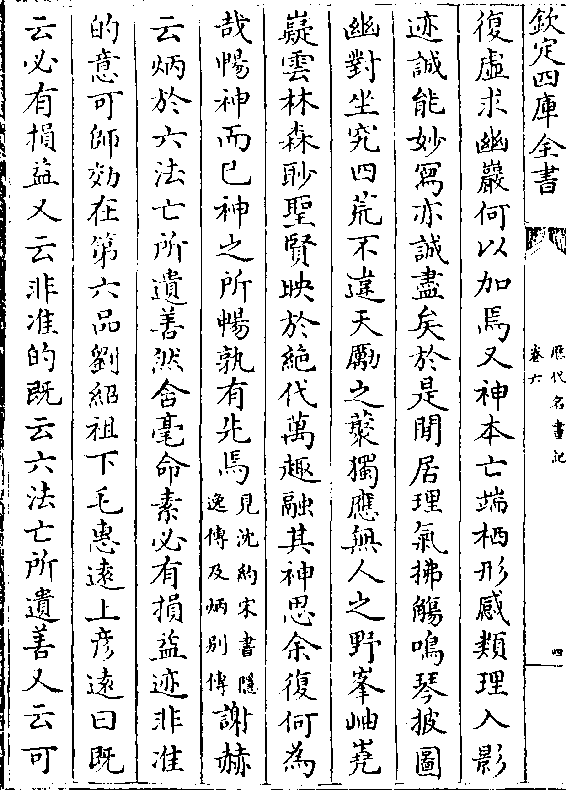 欽定四庫全書
歷代名畫記
卷六
四
復虛求幽巖何以加焉又神本亡端栖形感類理入影
迹誠能妙寫亦誠盡矣於是閒居理氣拂觴鳴琴披圖
幽對坐究四荒不違天勵之藂獨應無人之野峯岫嶤
嶷雲林森眇聖賢映於絶代萬趣融其神思余復何為
哉暢神而已神之所暢孰有先焉見沈約宋書隱逸傳及炳別傳謝赫
云炳於六法亡所遺善然含毫命素必有損益迹非准
的意可師效在第六品劉紹祖下毛惠遠上彦遠曰既
云必有損益又云非准的既云六法亡所遺善又云可